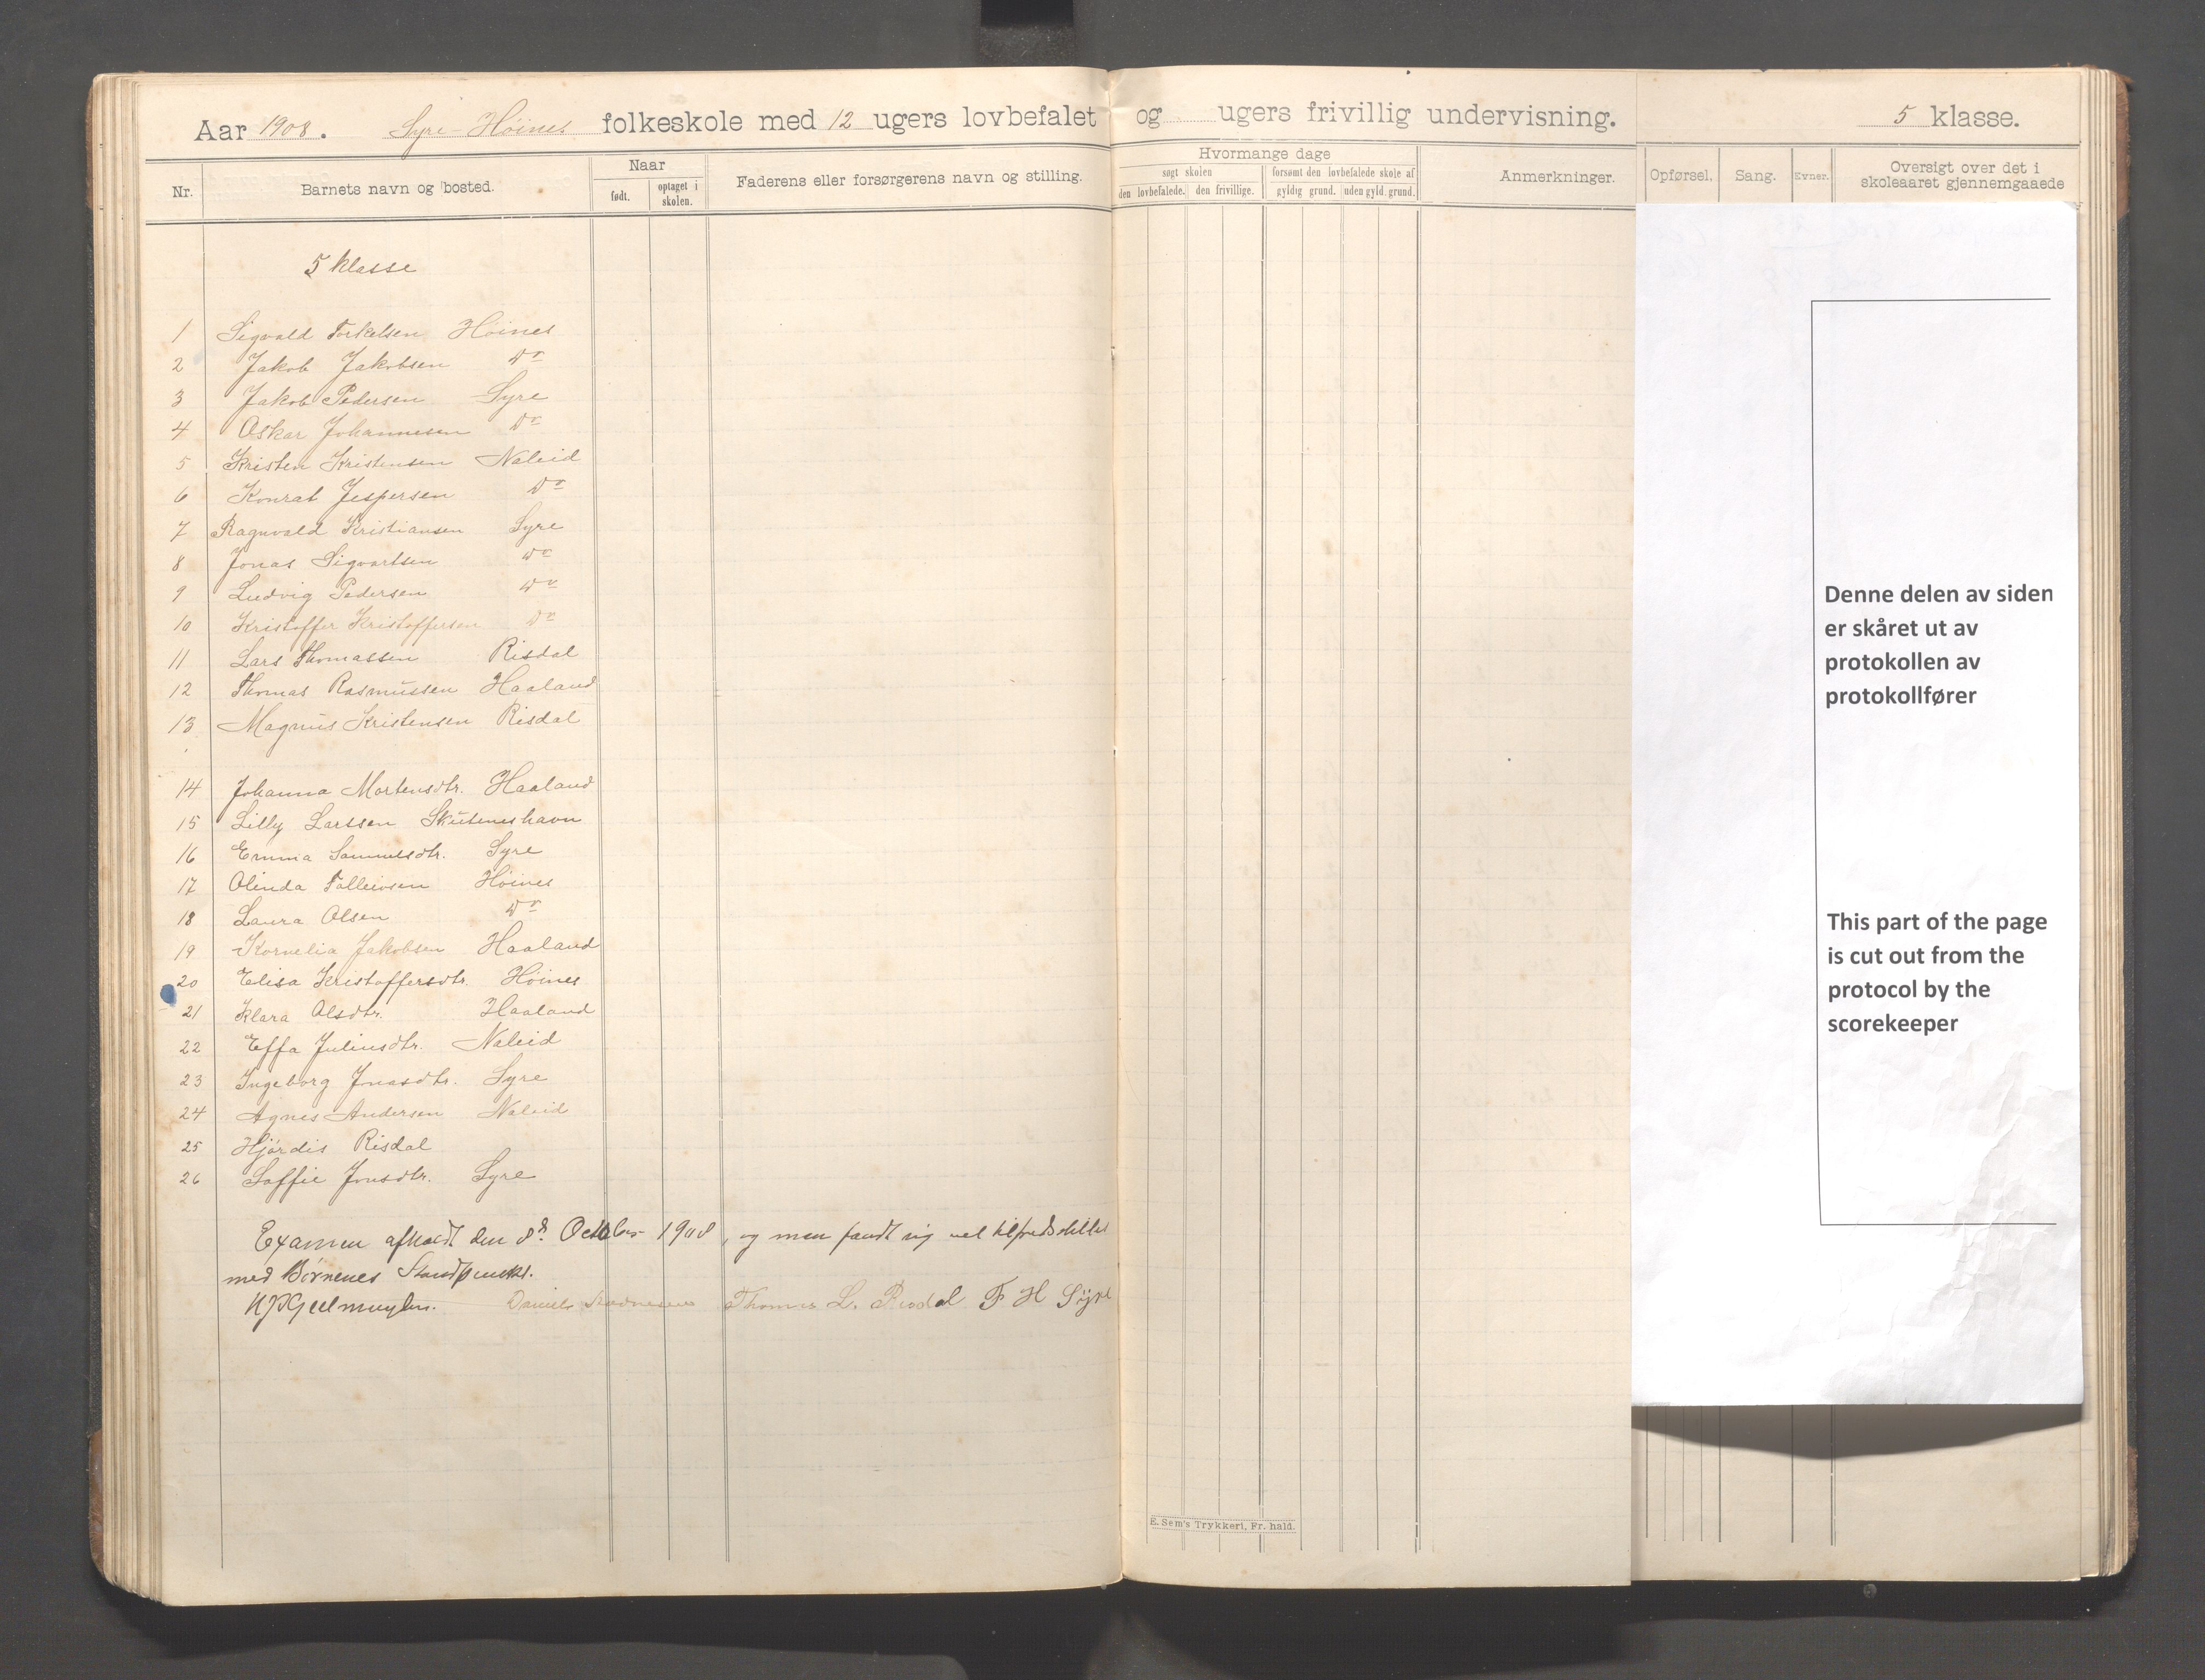 Aar 1908. Syre-Høines folkeskole med 12 ugers lovbefalet og ugers frivillig undervisning. 5 klasse.
Nr. Barnets navn og bosted. Naar Faderens eller forsørgerens navn og stilling. Hvormange dage Anmerkninger. Opførsel. Sang. Evner. Oversigt over det i skoleaaret gjennemgaaede
født. optaget i skolen. søgt skolen forsømt den lovbefalede skole af
den lovbefalede. den frivillige. gyldig grund. uden gyld. grund.
5 klasse
1 Sigvald Torkelsen Høines
2 Jakob Jakobsen Do
3 Jakob Pedersen Syre
4 Oskar Johannesen Do
5 Kristen Kristensen Naleid
6 Konrat Jespersen Do
7 Ragnvald Kristiansen Syre
8 Jonas Sigvartsen Do
9 Ludvig Pedersen Do
10 Kristoffer Kristoffersen Do
11 Lars Thomassen Risdal
12 Thomas Rasmussen Haaland
13 Magnus Kristensen Risdal
14 Johanna Mortensdtr. Haaland
15 Lilly Larssen Skuteneshavn
16 Emma Samuelsdtr. Syre
17 Olinda Tolleivsen Høines
18 Laura Olsen Do
19 Kornelia Jakobsen Haaland
20 Elisa Kristoffersdtr. Høines
21 Klara Olsdtr. Haaland
22 Effa Juliusdtr. Naleid
23 Ingeborg Jonasdtr. Syre
24 Agnes Andersen Naleid
25 Hjørdis Risdal
26 Soffie Jonsdtr. Syre
Examen afholdt den 8d October 1908, og man fandt sig vel tilfredsstillet
med Børnenes Standpunkt.
Geelmuyden. Daniel Thomas L. Risdal F H Syre
E. Sem's Trykkeri, Fr. hald.
Denne delen av siden
er skåret ut av
protokollen av
protokollfører
This part of the page
is cut out from the
protocol by the
scorekeeper